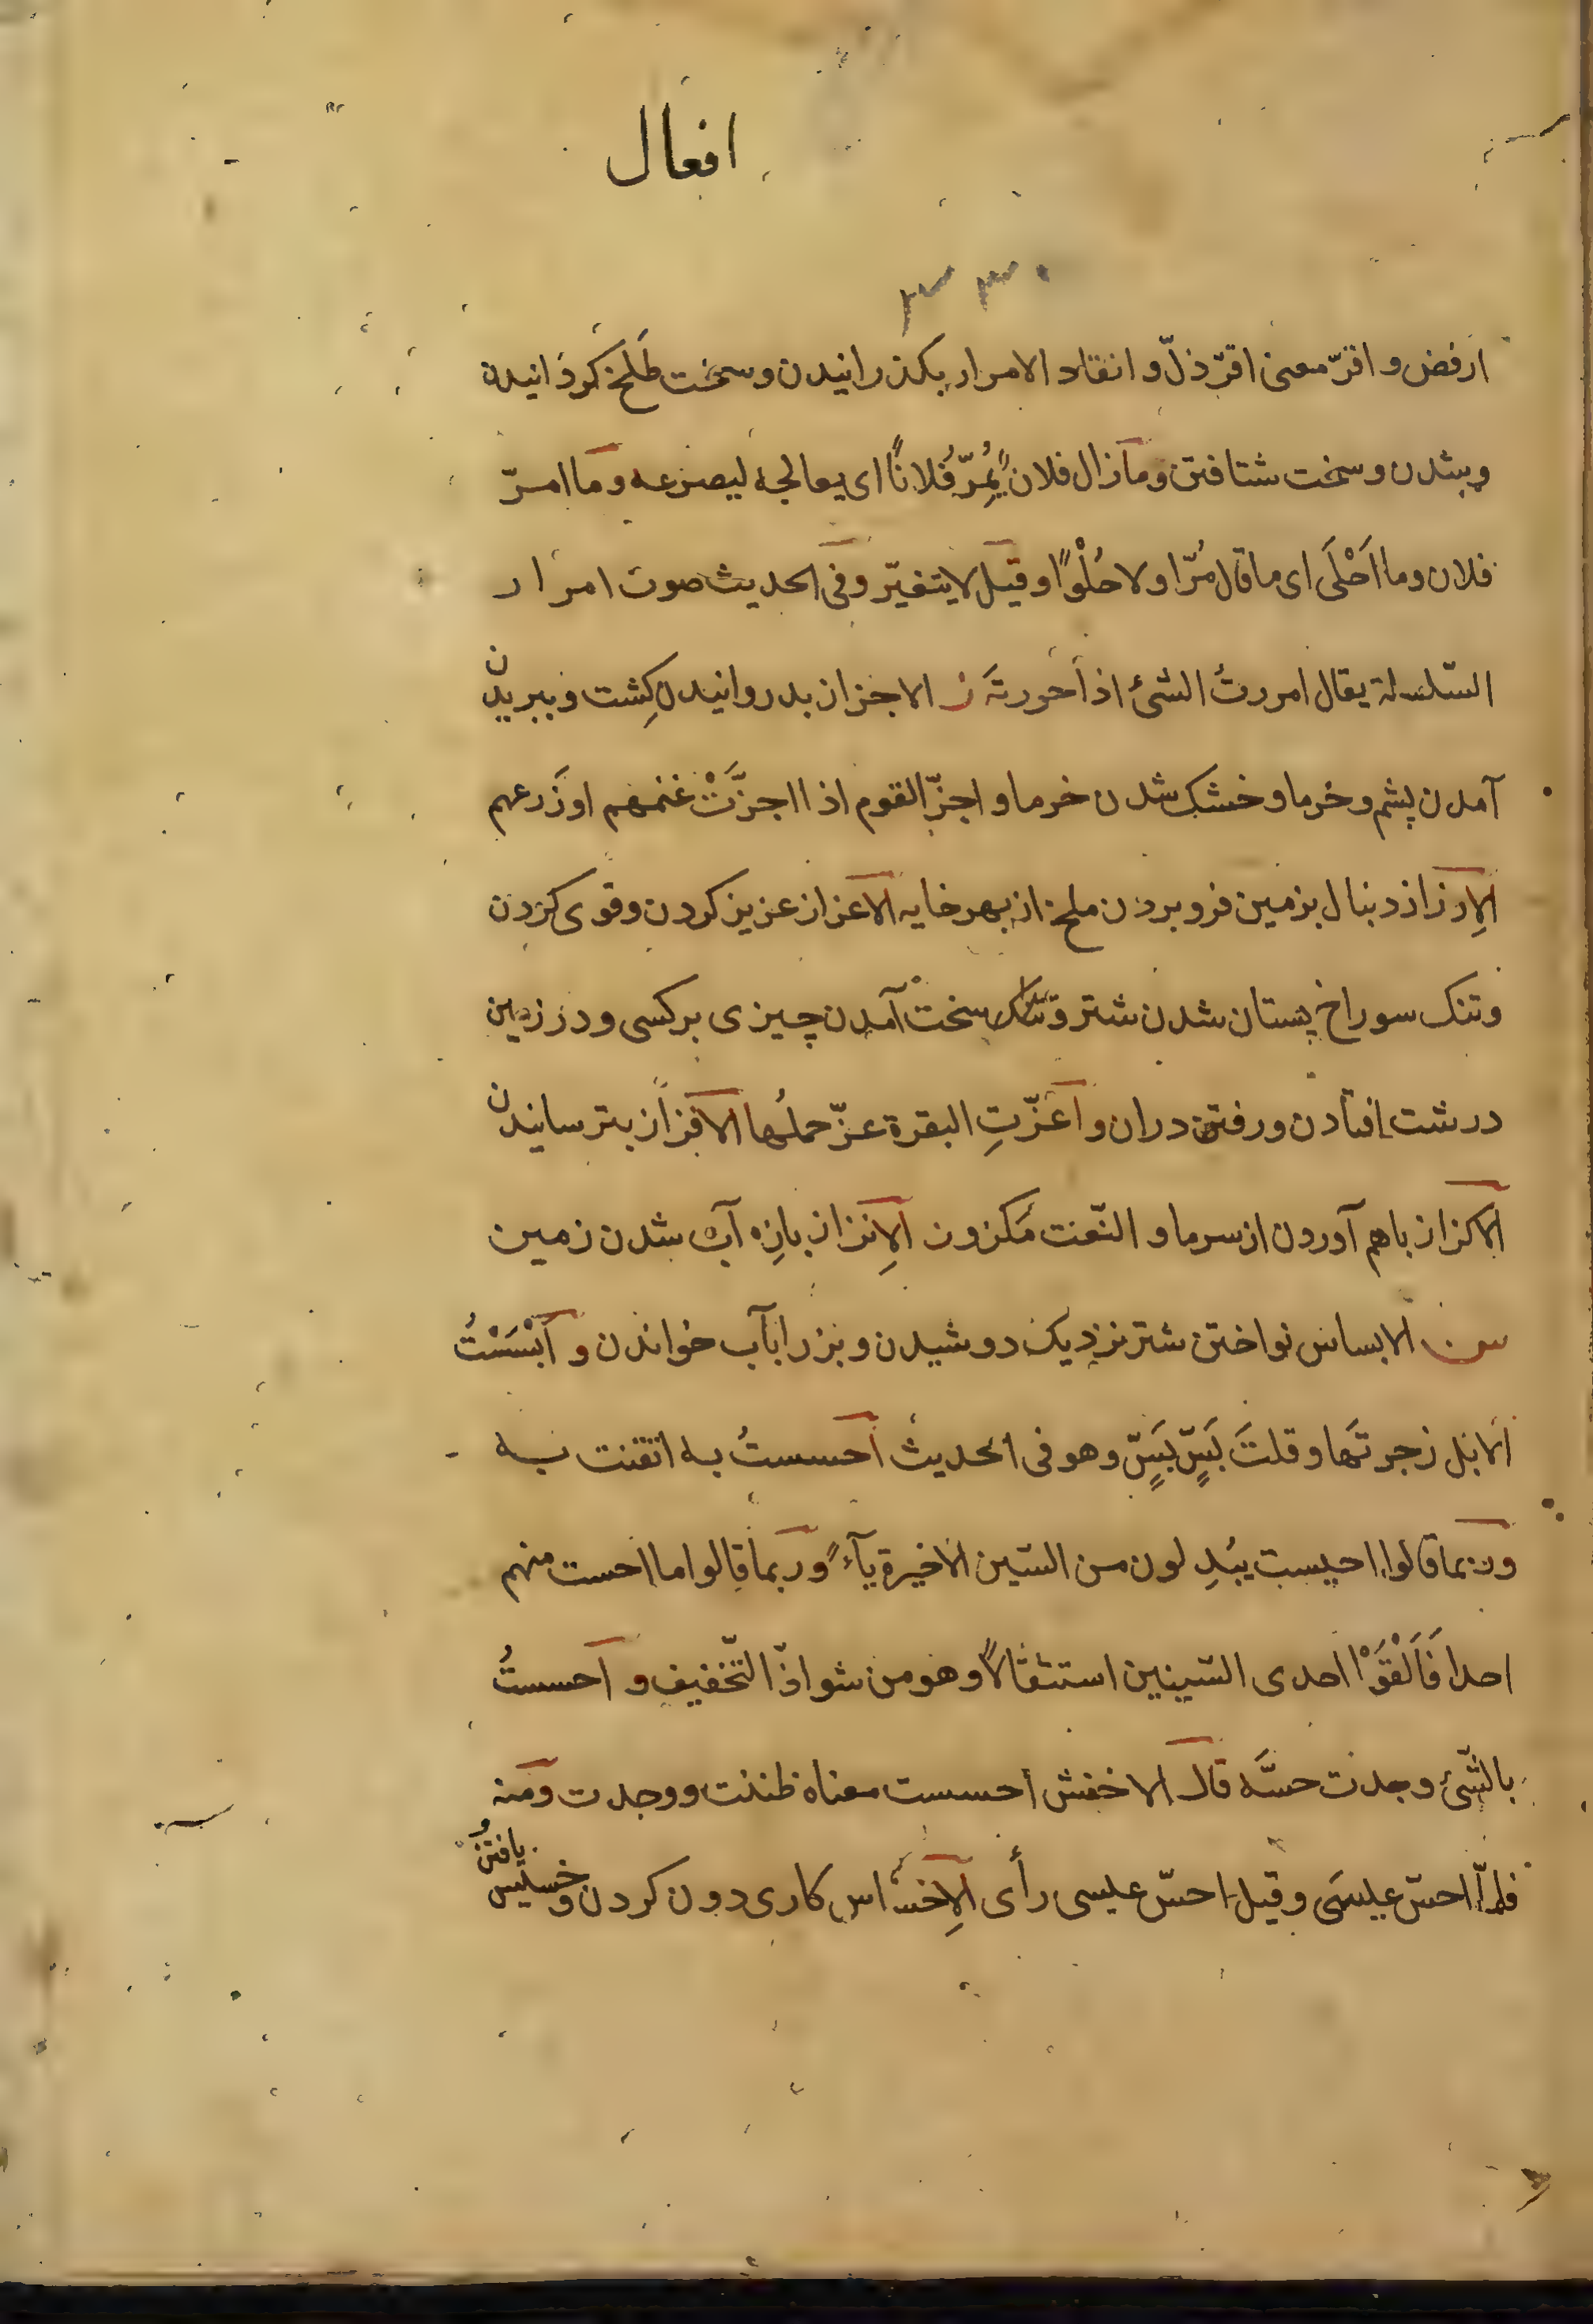 افعال
۳۳۰
ارفض و اقرّ معنی اقرّ ذلّ و انقاد الامرار بکذرانیدن و سخت طلخ کردانیدن
وبشدن و سخت شتافتن وما زال فلانٌ یُمِرّ فُلانًا ای یعالجه لیصرعه وما امرّ
فلان وما اَحْلَی ای ما قال مُرّا ولا حُلْوًا وقیل لا یتغیّر وفی الحدیث صوت امرار
السّلسلة یقال امررتُ الشئ اذا حررته ز الاجزاز بدروانیدن کِشت و ببریدن
آمدن پشم و خرما و خشک شدن خرما و اجزّ القوم اذا اجزَّتْ غنمهم او زَرعهم
الاِرزاز دنبال بزمین فرو بردن ملخ از بهر خایه الاعزاز عزیز کردن و قوی کردن
و تنک سوراخ پستان شدن شتر و سخت آمدن چیزی بر کسی و در زمین
درشت افتادن و رفتن دران و اَعَزّتِ البقرة عزّ حملُها الافزاز بترسانیدن
الاکزاز باهم آوردن از سرما و النّعت مَکزوز الاِنزاز بازه آب شدن زمین
س الابساس نواختن شتر نزدیک دوشیدن و بز را بآب خواندن و اَبْسَسْتُ
الابل زجرتها و قلتَ بَسٍّ بَسٍّ وهو فی الحدیث احسستُ به اتقنت به
وربما قالوا احیست یبُدِلون من السّین الاخیرة یآءً وربما قالوا ما احست منهم
احدا فَاَلْقَوْا احدی السّینین استثقالاً وهو من شواذّ التّخفیف و احسستُ
بالشّیٔ وجدت حسَّه قال الاخفش احسست معناه ظننت ووجدت ومنه
فلمّا احسّ عیسی وقیل احسّ عیسی رأی الاِخساس کاری دون کردن و خسیس یافتن و